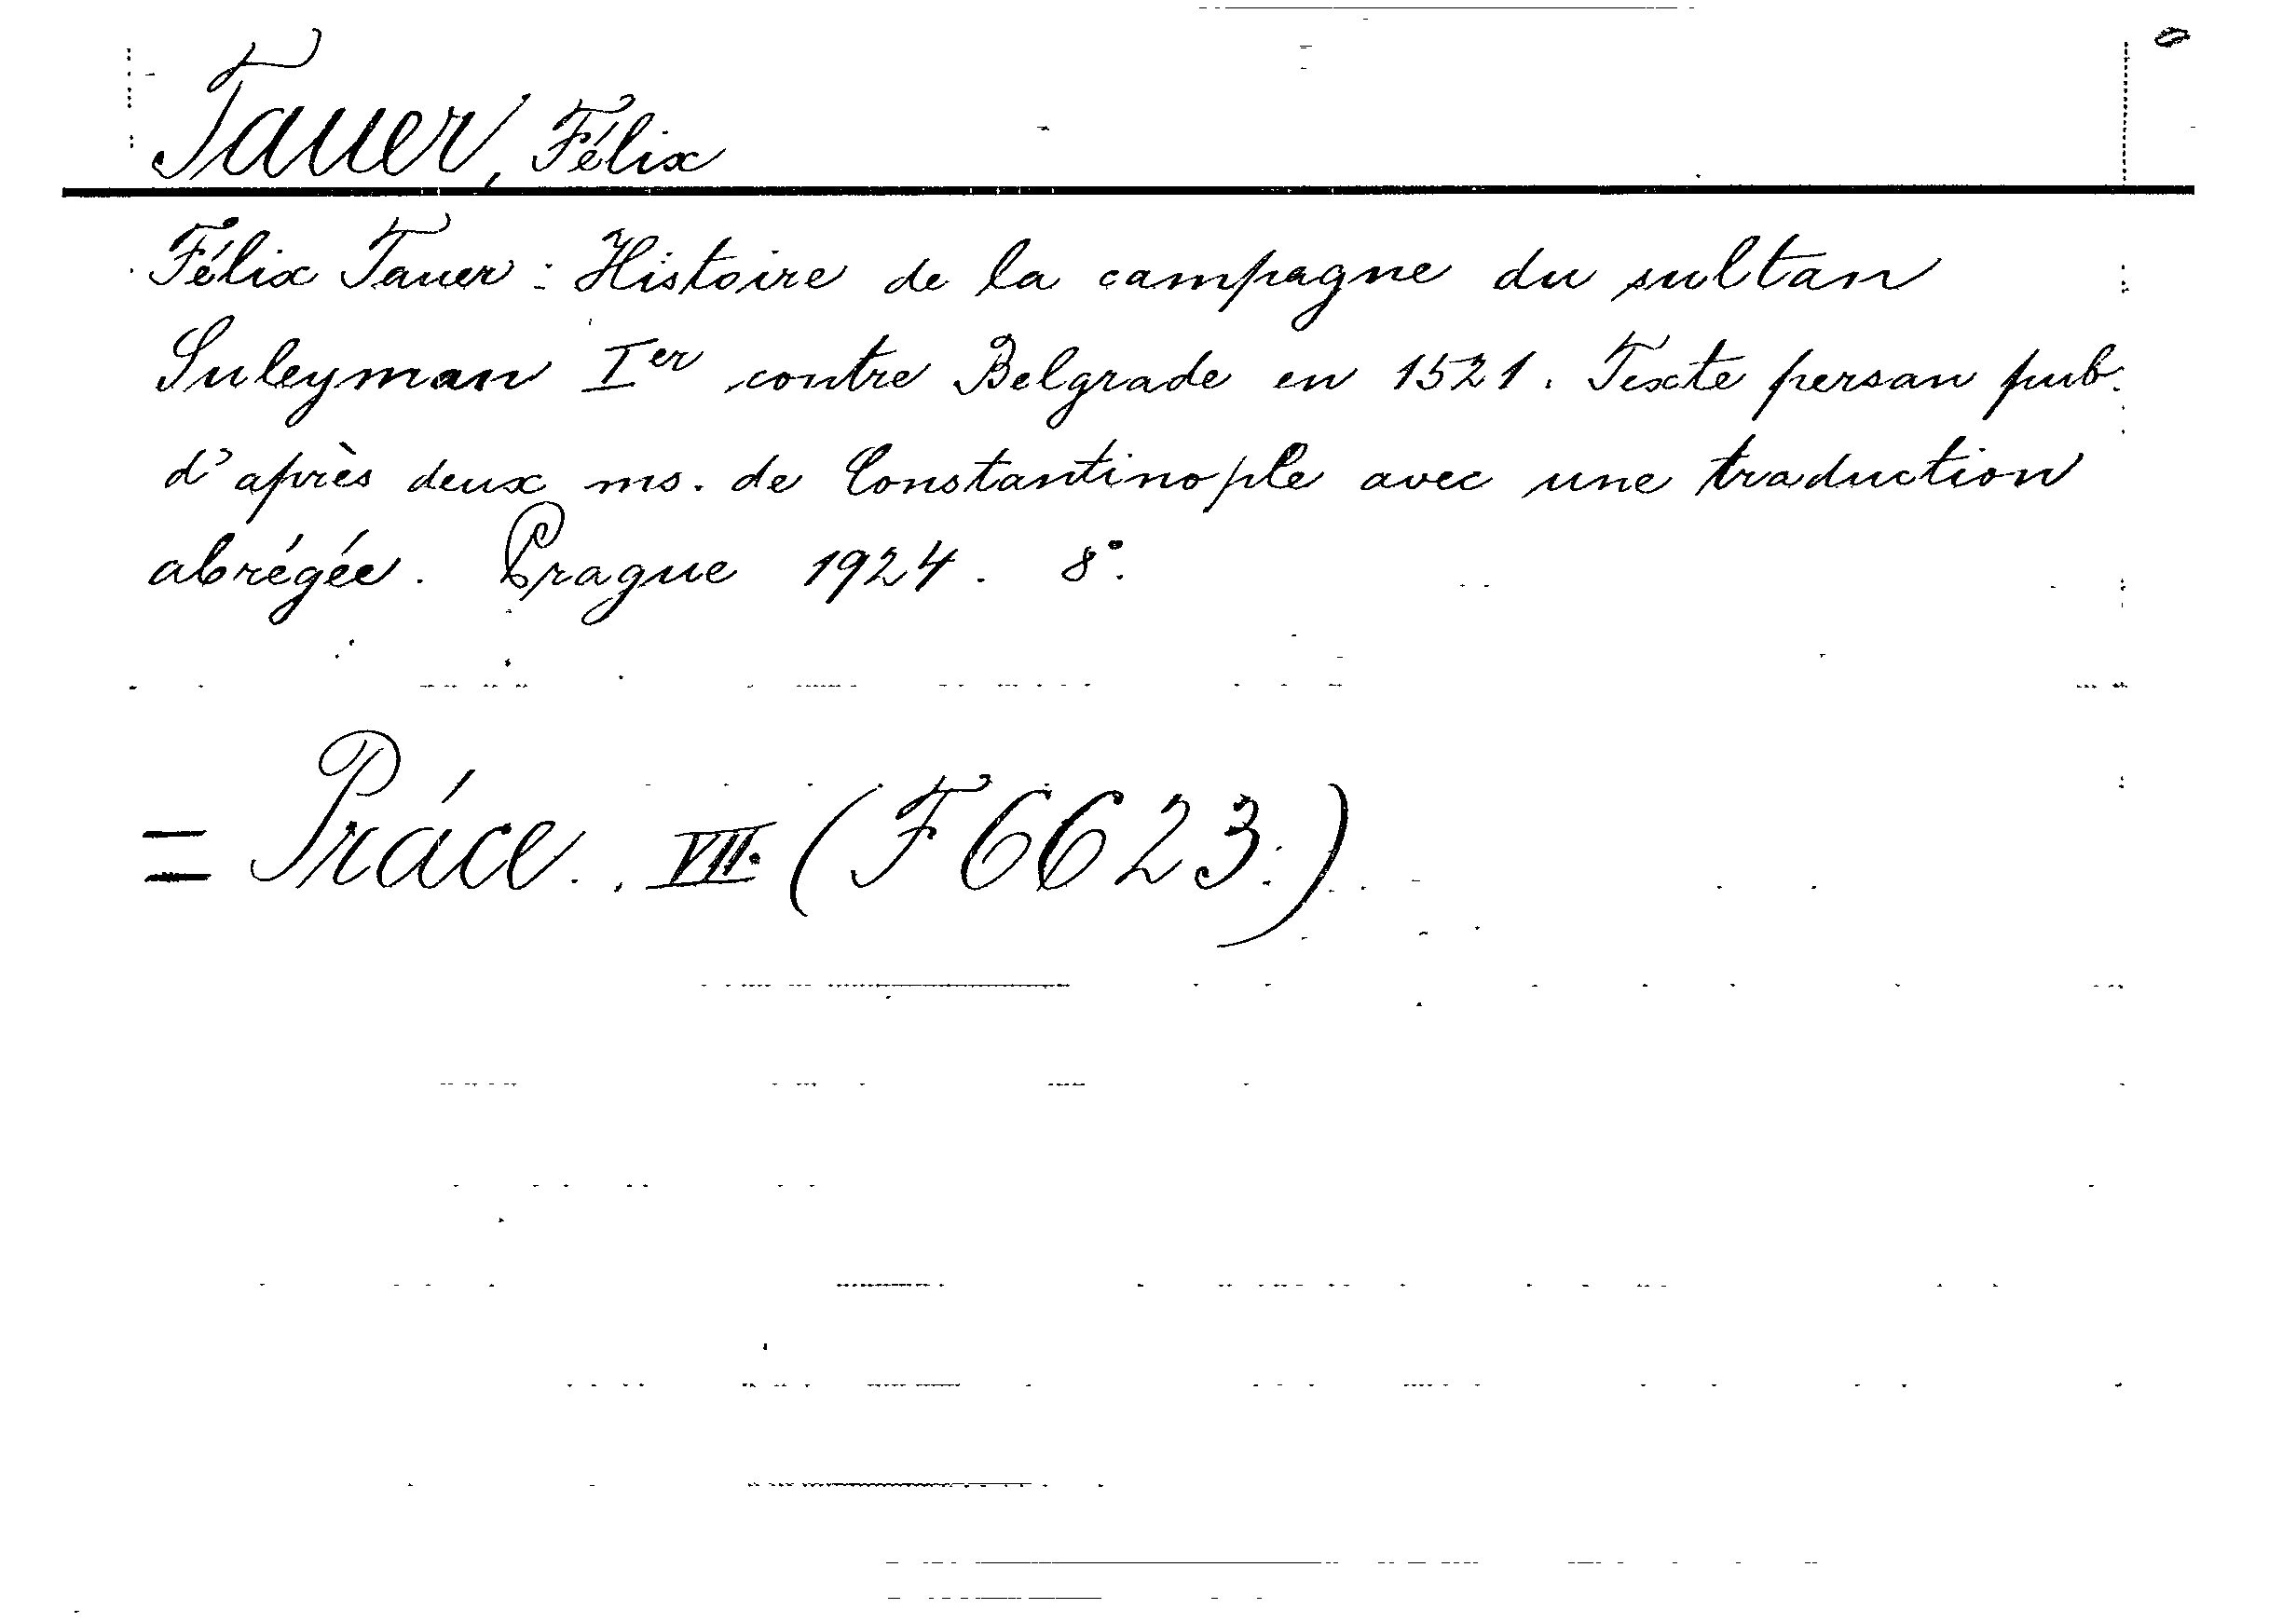 Tauer, Félix
Félix Tauer : Histoire de la campagne du sultan
Suleyman Ier contre Belgrade en 1521. Texte persan pub.
d'après deux ms. de Constantinople avec une traduction
abrégée. Prague 1924. 8°.
= Práce.. VII. (F 6623.)